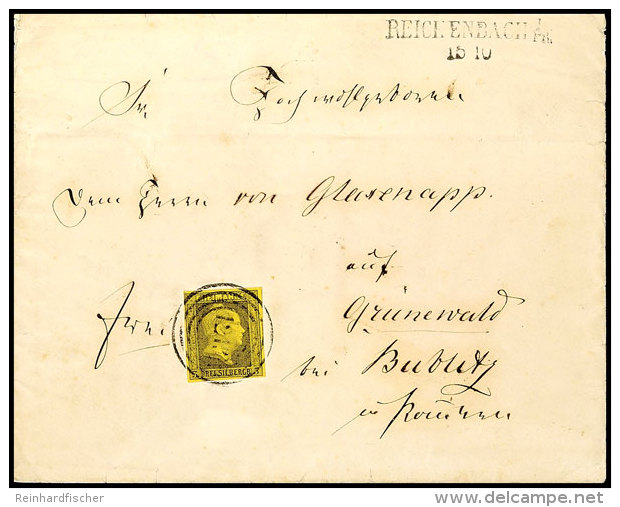 REICHENBACH I/PR.
15 10
Sr. Hochwohlgeboren
Dem Herrn von Glasenapp.
auf
Frei Grünewald
bei Bublitz
in Pommern
FREIMARKE
3 DREI SILBERGR. 3
Reinhardfischer
www.delcampe.net